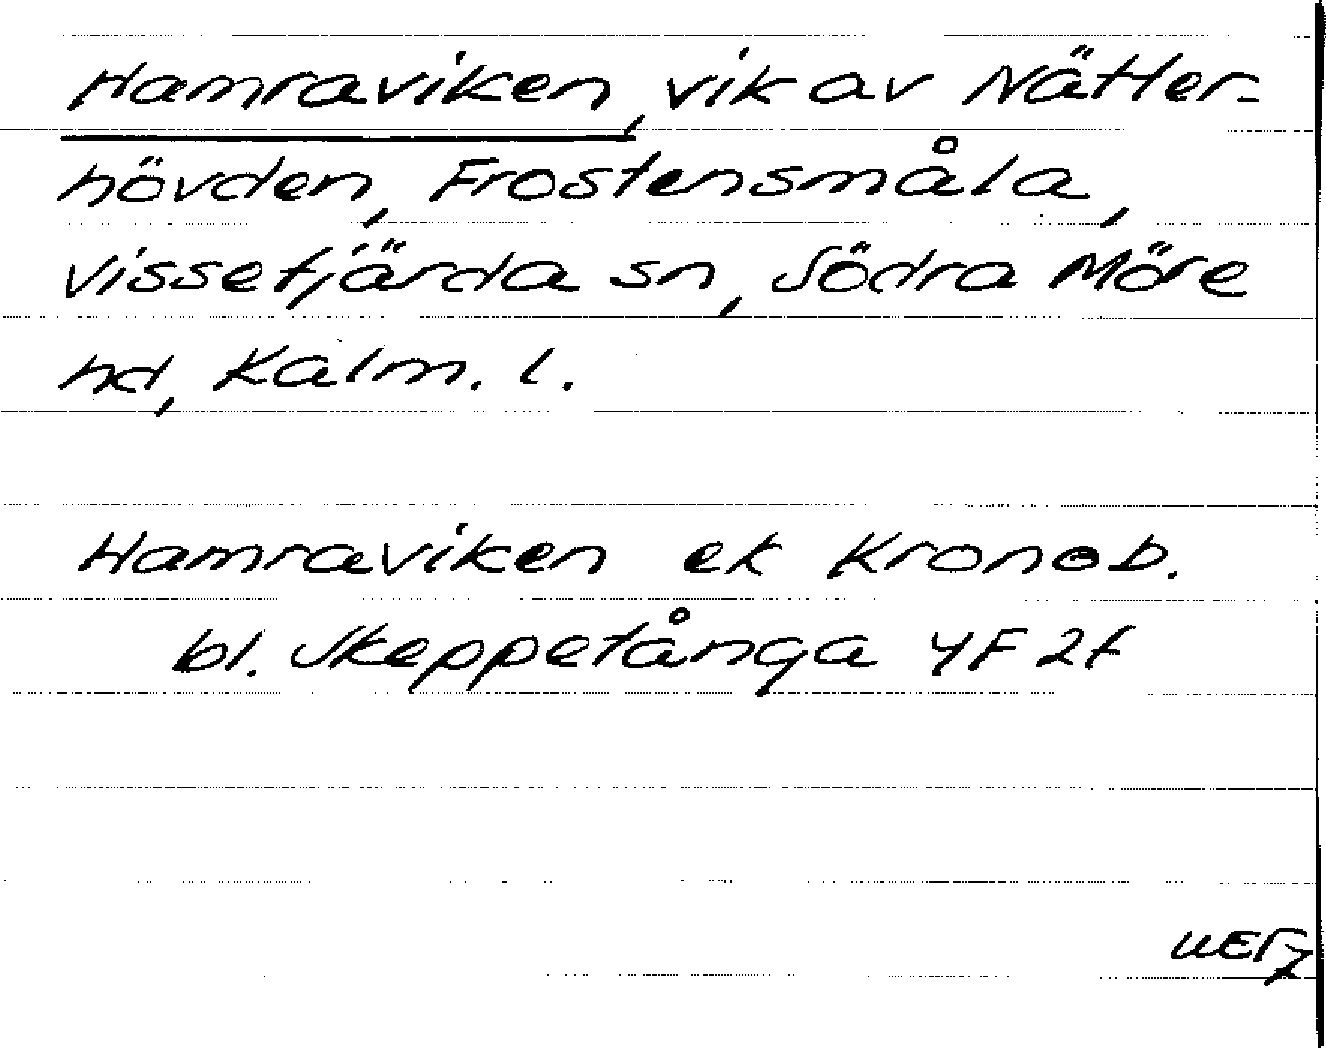 Hamraviken, vik av Nätter-
hövden, Frostensmåla,
Vissefjärda sn, Södra Möre
hd, Kalm. l.
Hamraviken ek Kronob.
bl. Skeppetånga 4F 2f